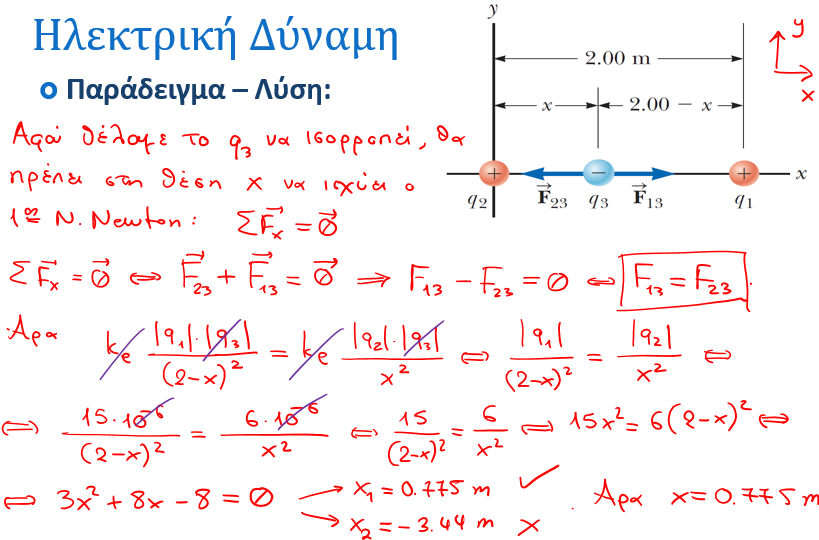 Ηλεκτρική Δύναμη
Παράδειγμα – Λύση:
y
2.00 m
x
2.00 − x
+
−
+
x
q₂
F⃗₂₃
q₃
F⃗₁₃
q₁
y
x
Αφού θέλουμε το q₃ να ισορροπεί, θα
πρέπει στη θέση x να ισχύει ο
1ος Ν. Newton: ΣF⃗ₓ = 0⃗
ΣF⃗ₓ = 0⃗ ⇔ F⃗₂₃ + F⃗₁₃ = 0⃗ ⇒ F₁₃ − F₂₃ = 0 ⇔ F₁₃ = F₂₃.
Άρα kₑ |q₁|·|q₃| / (2−x)² = kₑ |q₂|·|q₃| / x² ⇔ |q₁| / (2−x)² = |q₂| / x² ⇔
⇔ 15·10⁻⁶ / (2−x)² = 6·10⁻⁶ / x² ⇔ 15 / (2−x)² = 6 / x² ⇔ 15x² = 6(2−x)² ⇔
⇔ 3x² + 8x − 8 = 0 → x₁ = 0.775 m ✓
→ x₂ = −3.44 m ×
. Άρα x = 0.775 m